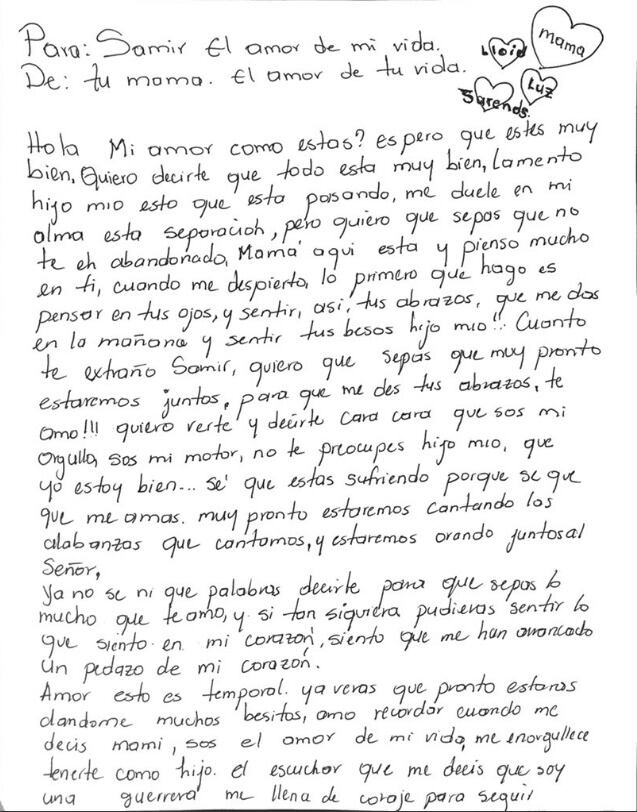 Para: Samir El amor de mi vida.
De: tu mama. El amor de tu vida.
Lloid
mama
Luz
Sarends.
Hola Mi amor como estas? espero que estes muy
bien, Quiero decirte que todo esta muy bien, Lamento
hijo mio esto que esta pasando, me duele en mi
alma esta separacion, pero quiero que sepas que no
te eh abandonado, Mamá aqui esta y pienso mucho
en ti, cuando me despierto, lo primero que hago es
pensar en tus ojos, y sentir, asi, tus abrazos, que me das
en la mañana y sentir tus besos hijo mio!! Cuanto
te extraño Samir, quiero que sepas que muy pronto
estaremos juntos, para que me des tus abrazos, te
amo!!! quiero verte y decirte cara cara que sos mi
Orgullo, sos mi motor, no te preocupes hijo mio, que
yo estoy bien... sé que estas sufriendo porque se que
que me amas. muy pronto estaremos cantando las
alabanzas que cantamos, y estaremos orando juntos al
Señor,
Ya no se ni que palabras decirte para que sepas lo
mucho que te amo, y si tan siguiera pudieras sentir lo
que siento en mi corazón, siento que me han arrancado
un pedazo de mi corazón.
Amor esto es temporal. ya veras que pronto estaras
dandome muchos besitos, amo recordar cuando me
decis mami, sos el amor de mi vida, me enorgullece
tenerte como hijo. el escuchar que me decis que soy
una guerrera me llena de coraje para seguir